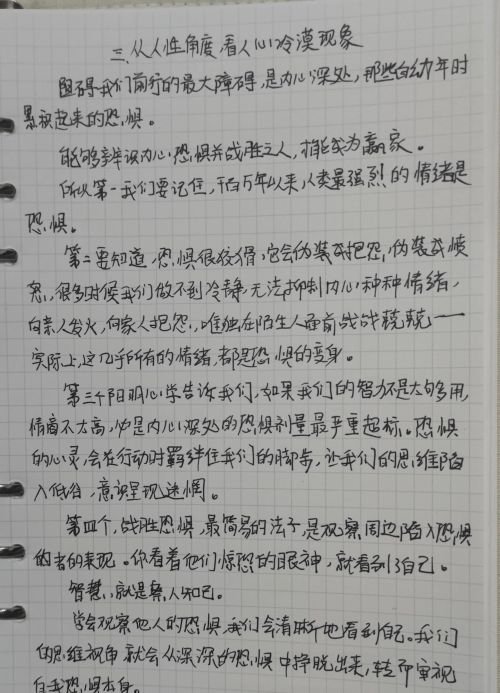 三、从人性角度,看人心冷漠现象
阻碍我们前行的最大障碍,是内心深处,那些自幼年时
累积起来的恐惧。
能够辨识内心恐惧并战胜之人,才能成为赢家。
所以第一我们要记住,千百万年以来,人类最强烈的情绪是
恐惧。
第二要知道,恐惧很狡猾,它会伪装成抱怨,伪装成愤
怒,很多时候我们做不到冷静,无法抑制内心种种情绪,
向亲人发火,向家人抱怨,唯独在陌生人面前战战兢兢——
实际上,这几乎所有的情绪,都是恐惧的变身。
第三个阳明心学告诉我们,如果我们的智力不是太够用,
情商不太高,那是内心深处的恐惧剂量最严重超标。恐惧
的心灵,会在行动时羁绊住我们的脚步,让我们的思维陷
入低谷,意识呈现迷惘。
第四个,战胜恐惧,最简易的法子,是观察周边陷入恐惧
的者的表现。你看着他们惊恐的眼神,就看到了自己。
智慧,就是察人知己。
学会观察他人的恐惧,我们会清晰地看到自己。我们
的思维视角就会从深深的恐惧中挣脱出来,转而审视
自我恐惧本身。